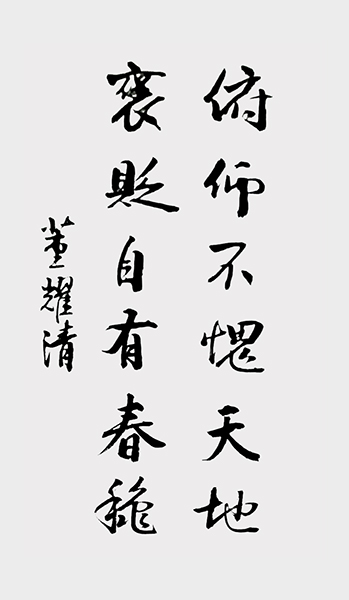 俯仰不愧天地
褒貶自有春穐
董耀清